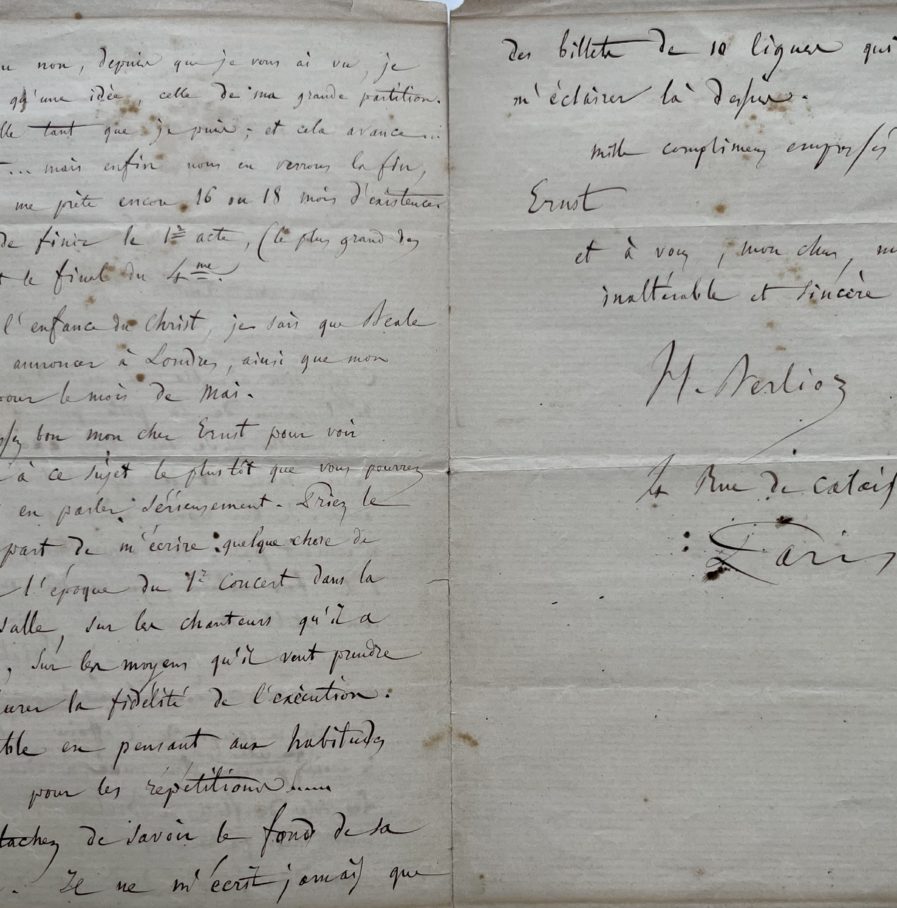 non, depuis que je vous ai vu, je
qu'une idée, celle de ma grande partition.
tant que je puis ; et cela avance...
... mais enfin nous en verrons la fin,
me prête encore 16 ou 18 mois d'existence
de finir le 1er acte, (le plus grand des
le final du 4me.
l'enfance du Christ, je sais que Beale
annoncer à Londres, ainsi que mon
pour le mois de Mai.
bon mon cher Ernst pour voir
à ce sujet le plustôt que vous pourrez
en parler sérieusement. Priez le
part de m'écrire quelque chose de
l'époque du 1er concert dans la
salle, sur les chanteurs qu'il a
, sur les moyens qu'il veut prendre
la fidélité de l'exécution.
en pensant aux habitudes
pour les répétitions.....
tachez de savoir le fond de sa
. Il ne m'écrit jamais que
des billets de 10 lignes qui
m'éclairer là dessus.
mille complimens empressés
Ernst
et à vous, mon cher,
inaltérable et sincère
H. Berlioz
4 Rue de Calais
Paris